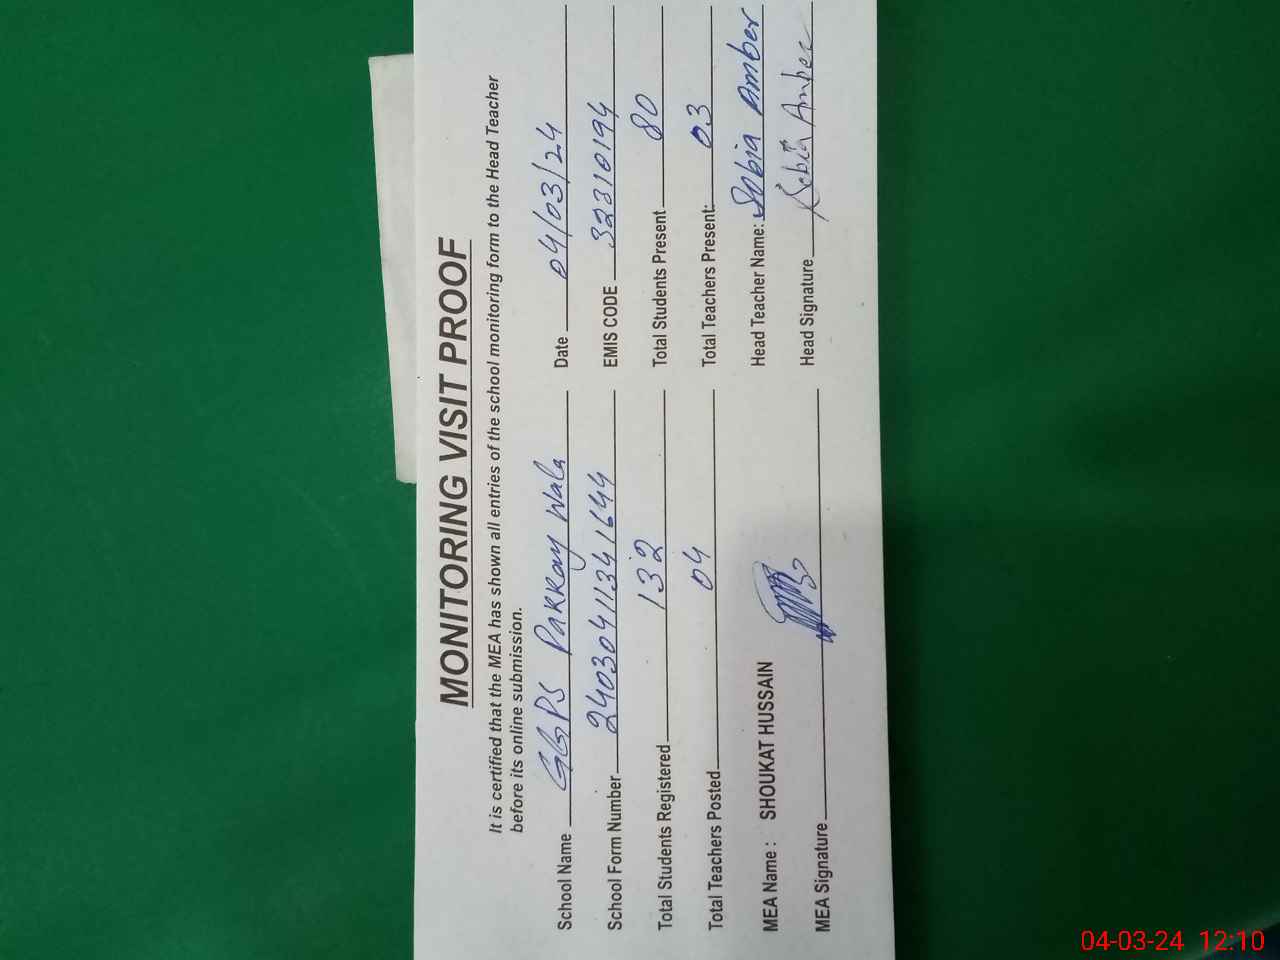 MONITORING VISIT PROOF
It is certified that the MEA has shown all entries of the school monitoring form to the Head Teacher
before its online submission.
School Name GGPS Pakkay Wala Date 04/03/24
School Form Number 24030411341644 EMIS CODE 32310194
Total Students Registered 132 Total Students Present 80
Total Teachers Posted 04 Total Teachers Present: 03
MEA Name : SHOUKAT HUSSAIN Head Teacher Name: Sobia Amber
MEA Signature Head Signature Sobia Amber
04-03-24 12:10